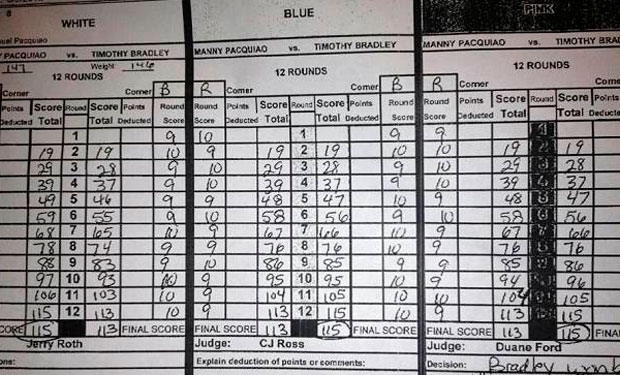 8
WHITE
nuel Pacquiao
PACQUIAO vs. TIMOTHY BRADLEY
147 Weight 146
12 ROUNDS
Corner Corner B
Points Score Round Score Points Round
Deducted Total Total Deducted Score
1 9
19 2 19 10
29 3 28 9
39 4 37 9
49 5 46 9
59 6 55 9
68 7 65 10
78 8 74 9
88 9 83 9
97 10 93 10
106 11 103 10
115 12 113 10
CORE 115 113 FINAL SCORE
Jerry Roth
ns:
BLUE
MANNY PACQUIAO vs. TIMOTHY BRADLEY
12 ROUNDS
R Corner Corner B
Round Points Score Round Score Points Round
Score Deducted Total Total Deducted Score
10 1 9
9 19 2 19 10
10 29 3 28 9
10 39 4 37 9
9 48 5 47 10
10 58 6 56 9
9 67 7 66 10
9 76 8 76 10
86 9 85 9
9 95 10 95 10
9 104 11 105 10
9 113 12 115 10
FINAL SCORE 113 115 FINAL SCORE
Judge: CJ Ross
Explain deduction of points or comments:
PINK
MANNY PACQUIAO vs. TIMOTHY BRA
12 ROUNDS
R Corner Corne
Round Points Score Round Score Points
Score Deducted Total Total Deducted
9
10 19 19
10 29 28
10 39 37
9 48 47
10 58 56
9 67 66
9 76 76
9 85 86
9 94 96
10 104 105
9 113 115
FINAL SCORE 113 115 FINA
Judge: Duane Ford
Decision: Bradley